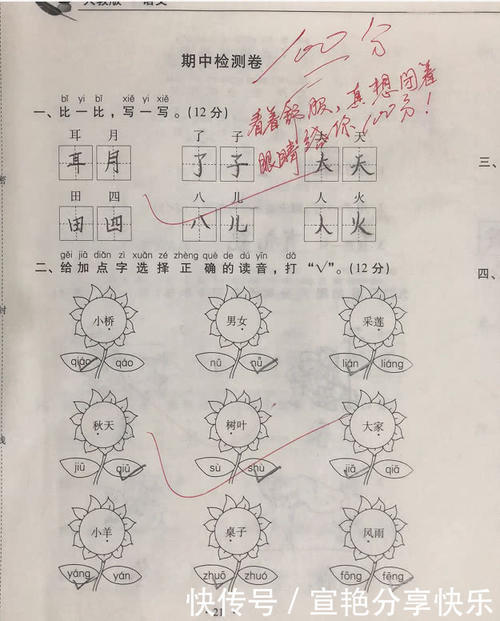 人教版 语文
期中检测卷
100分
看着舒服，真想闭着
眼睛给你100分！
bǐ yi bǐ xiě yi xiě
一、比一比，写一写。(12分)
耳 月 了 子 大 天
耳 月 了 子 大 天
田 四 八 儿 人 火
田 四 八 儿 人 火
gěi jiā diǎn zì xuǎn zé zhèng què de dú yīn dǎ
二、给加点字选择正确的读音，打“√”。(12分)
小桥 男女 采莲
qiáo qáo nǔ nǚ lián liáng
秋天 树叶 大家
jiū qiū sù shù jiā qiā
小羊 桌子 风雨
yáng yán zhuō zhuó fōng fēng
· 21 ·
三、
四、
密
封
线
快传号 / 宣艳分享快乐